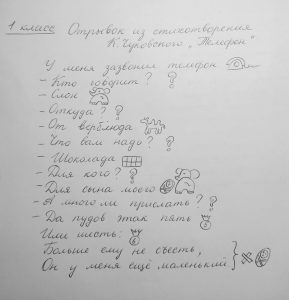 1 класс Отрывок из стихотворения
К. Чуковского „Телефон"
У меня зазвонил телефон
- Кто говорит? ?
- Слон
- Откуда? ?
- От верблюда
- Что вам надо? ?
- Шоколада
- Для кого? ?
- Для сына моего
- А много ли прислать? ?
- Да пудов этак пять 5
Или шесть: 6
Больше ему не съесть,
Он у меня ещё маленький